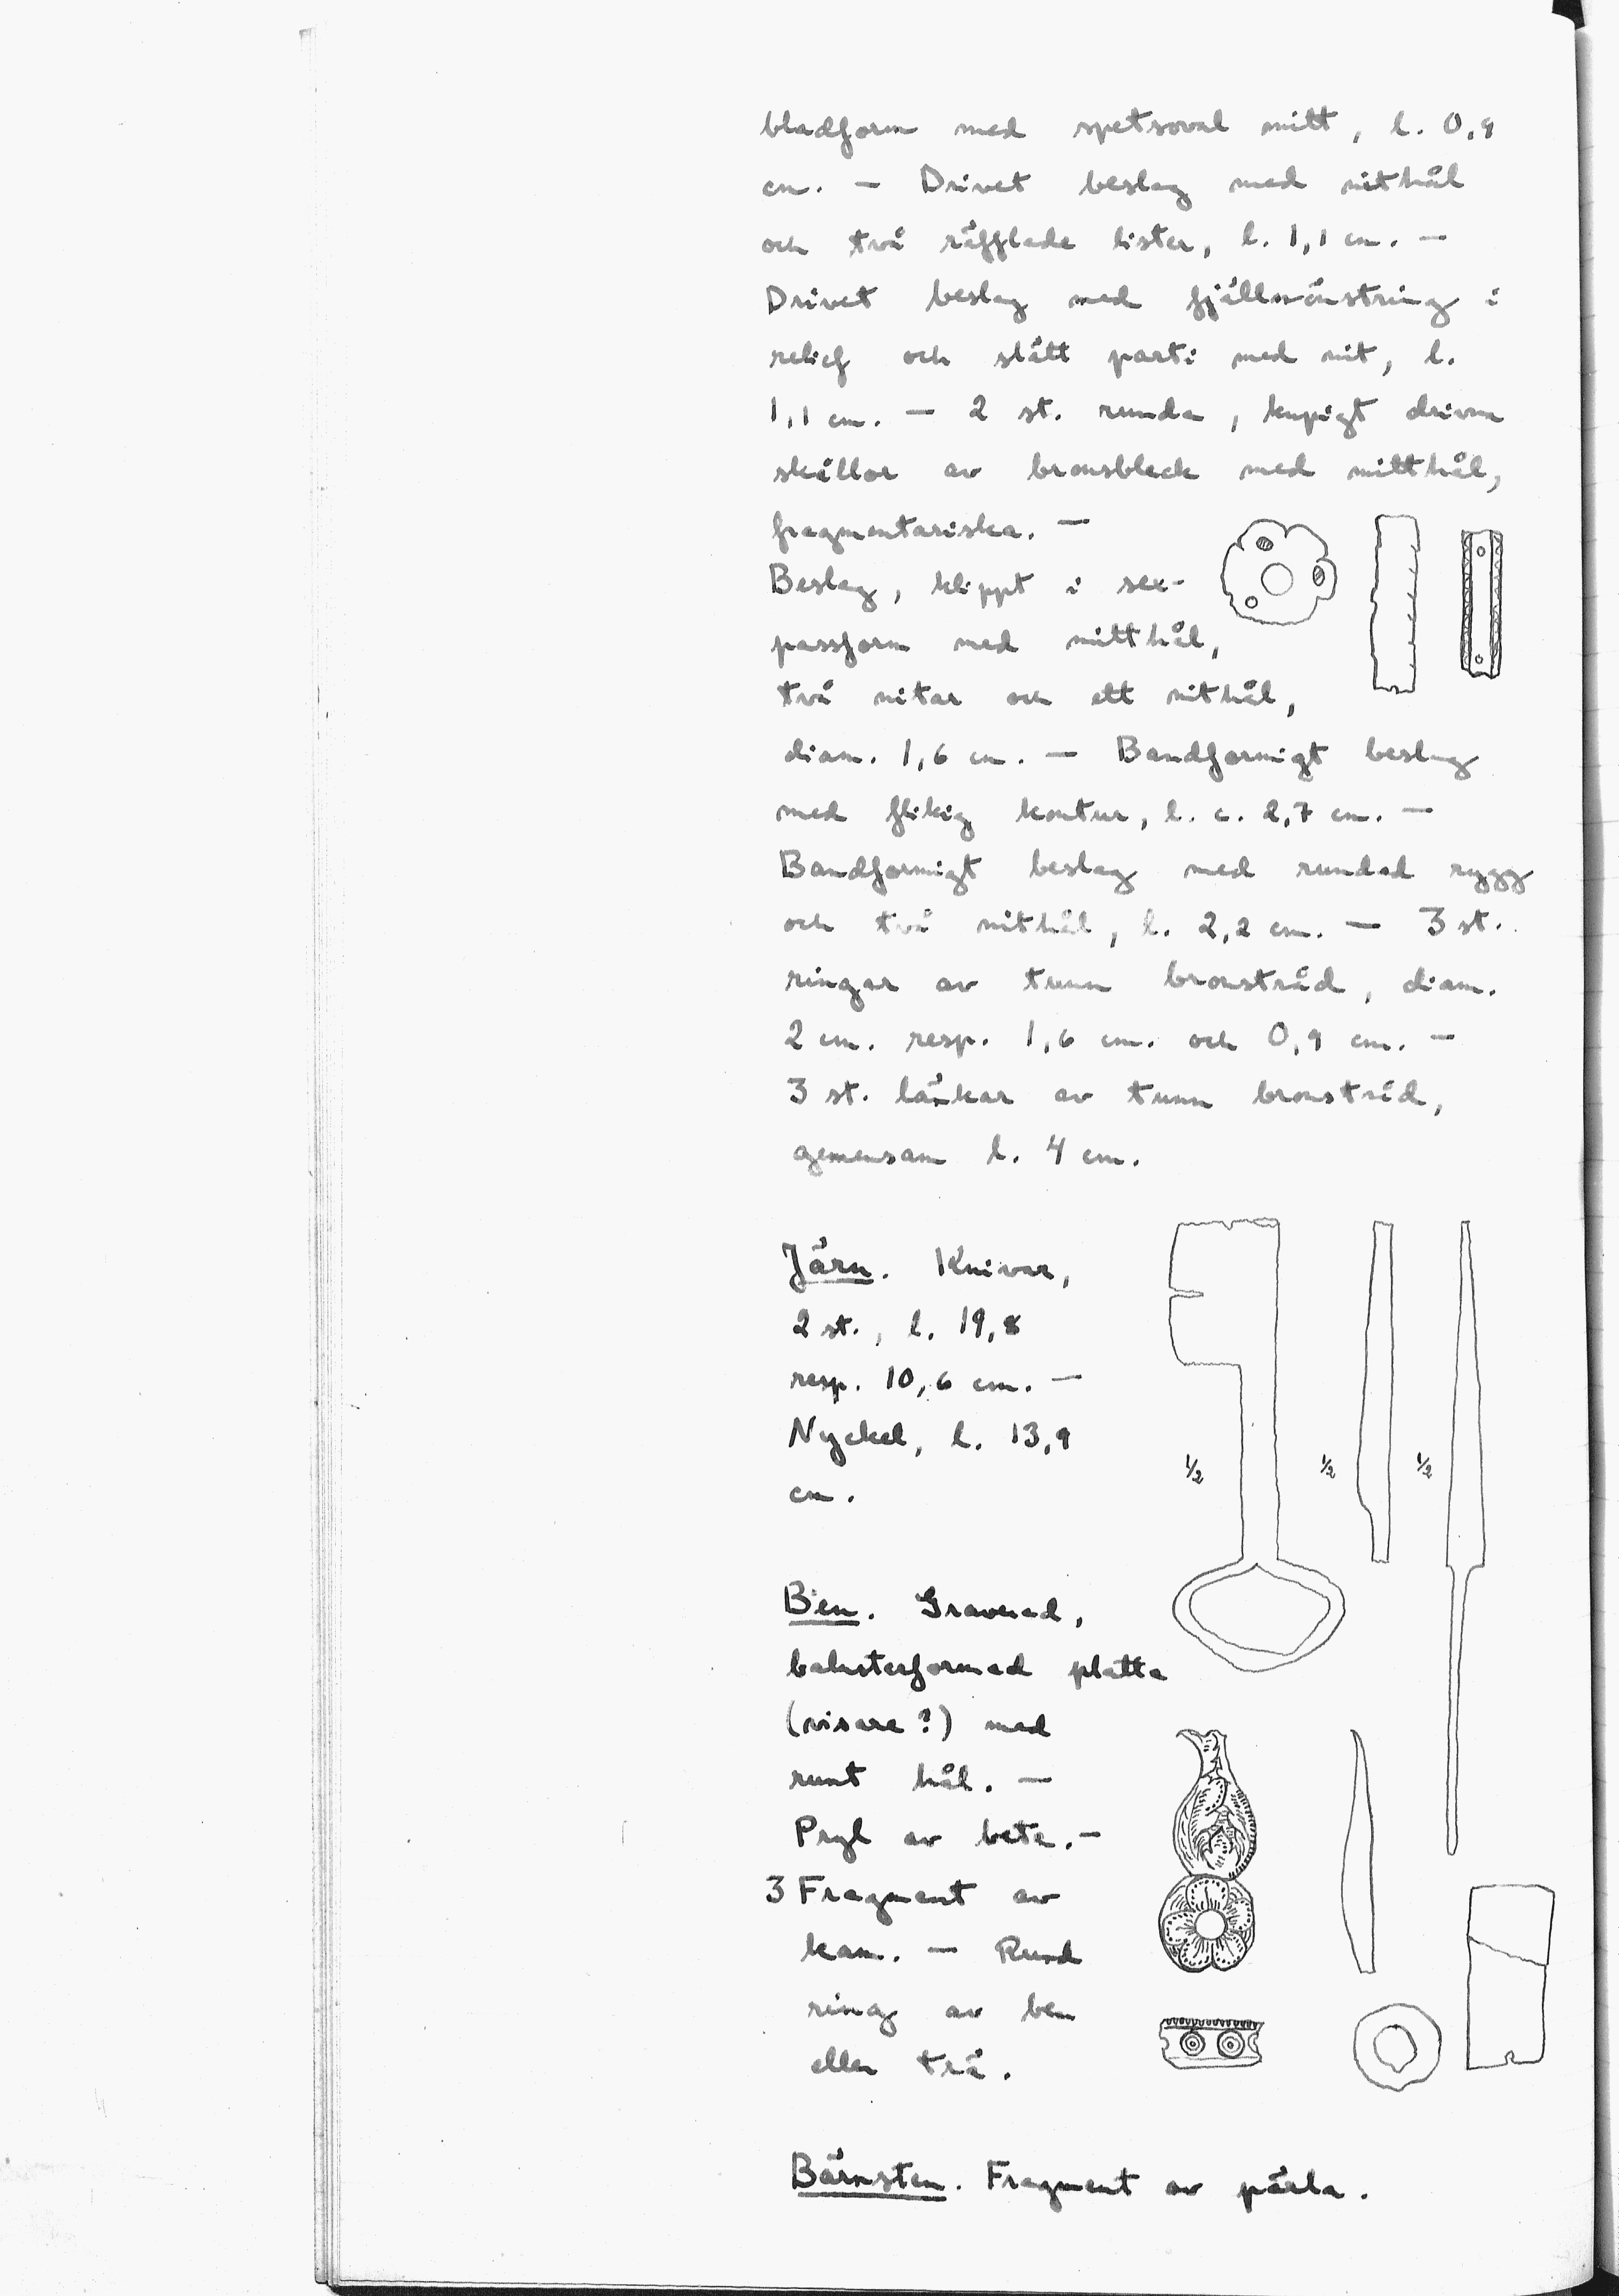 bladform med spetsoval mitt, l. 0,9
cm. — Drivet beslag med nithål
och två räfflade lister, l. 1,1 cm. —
Drivet beslag med fjällmönstring i
relief och slätt parti med nit, l.
1,1 cm. — 2 st. runda, kupigt drivna
skållor av bronsbleck med mitthål,
fragmentariska. —
Beslag, klippt i sex-
passform med mitthål,
två nitar och ett nithål,
diam. 1,6 cm. — Bandformigt beslag
med flikig kontur, l. c. 2,7 cm. —
Bandformigt beslag med rundad rygg
och två nithål, l. 2,2 cm. — 3 st.
ringar av tunn bronstråd, diam.
2 cm. resp. 1,6 cm. och 0,9 cm. —
3 st. länkar av tunn bronstråd,
gemensam l. 4 cm.
Järn. Knivar,
2 st., l. 19,8
resp. 10,6 cm. —
Nyckel, l. 13,9
cm.
1/2 1/2 1/2
Ben. Graverad,
balusterformad platta
(visare?) med
runt hål. —
Pryl av bete. —
3 Fragment av
kam. — Rund
ring av ben
eller trä.
Bärnsten. Fragment av pärla.